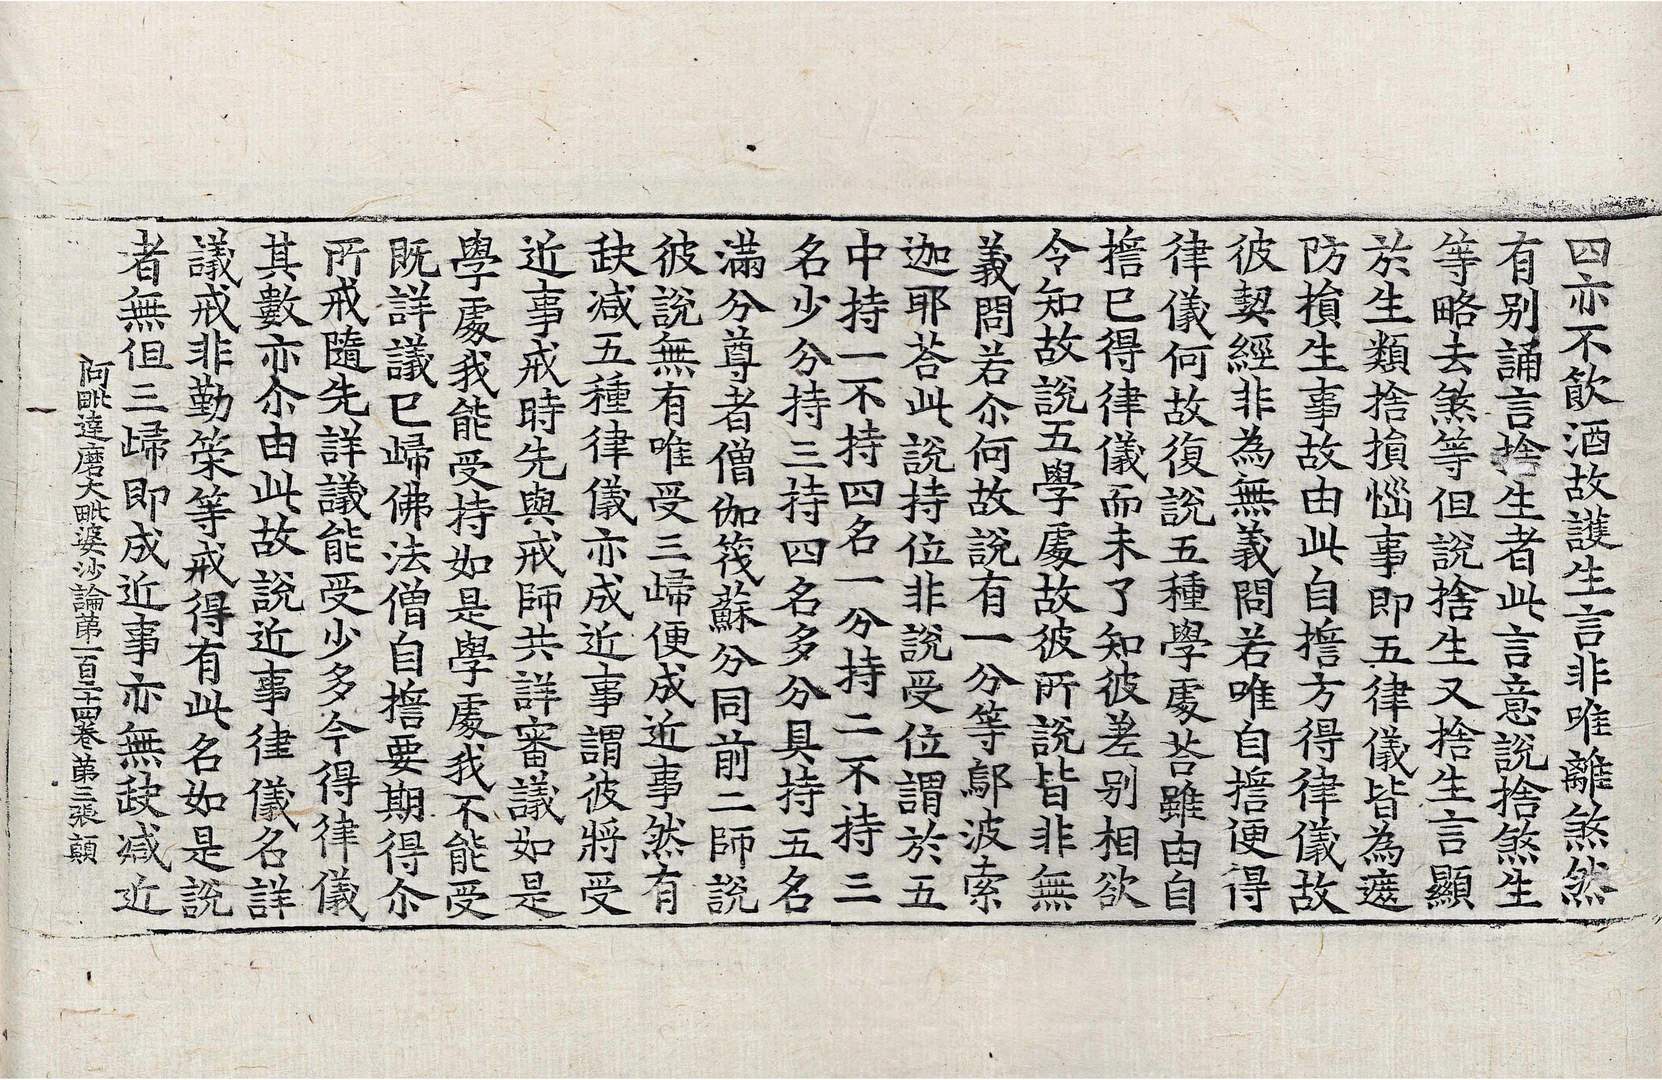 四亦不飮酒故護生言非唯離煞然
有別誦言捨生者此言意說捨煞生
等略去煞等但說捨生又捨生言顯
於生類捨損惱事即五律儀皆為遮
防損生事故由此自擔方得律儀故
彼契經非為無義問若唯自擔便得
律儀何故復說五種學處荅雖由自
擔已得律儀而未了知彼差別相欲
令知故說五學處故彼所說皆非無
義問若尒何故說有一分等鄔波索
迦耶荅此說持位非說受位謂於五
中持一不持四名一分持二不持三
名少分持三持四名多分具持五名
滿分尊者僧伽筏蘇分同前二師說
彼說無有唯受三歸便成近事然有
缺减五種律儀亦成近事謂彼將受
近事戒時先與戒師共詳審議如是
學處我能受持如是學處我不能受
既詳議已歸佛法僧自擔要期得尒
所戒隨先詳議能受少多今得律儀
其數亦尒由此故說近事律儀名詳
議戒非勤策等戒得有此名如是說
者無但三歸即成近事亦無缺减近
阿毗達磨大毗婆沙論第一百二十四卷 第三張 顛